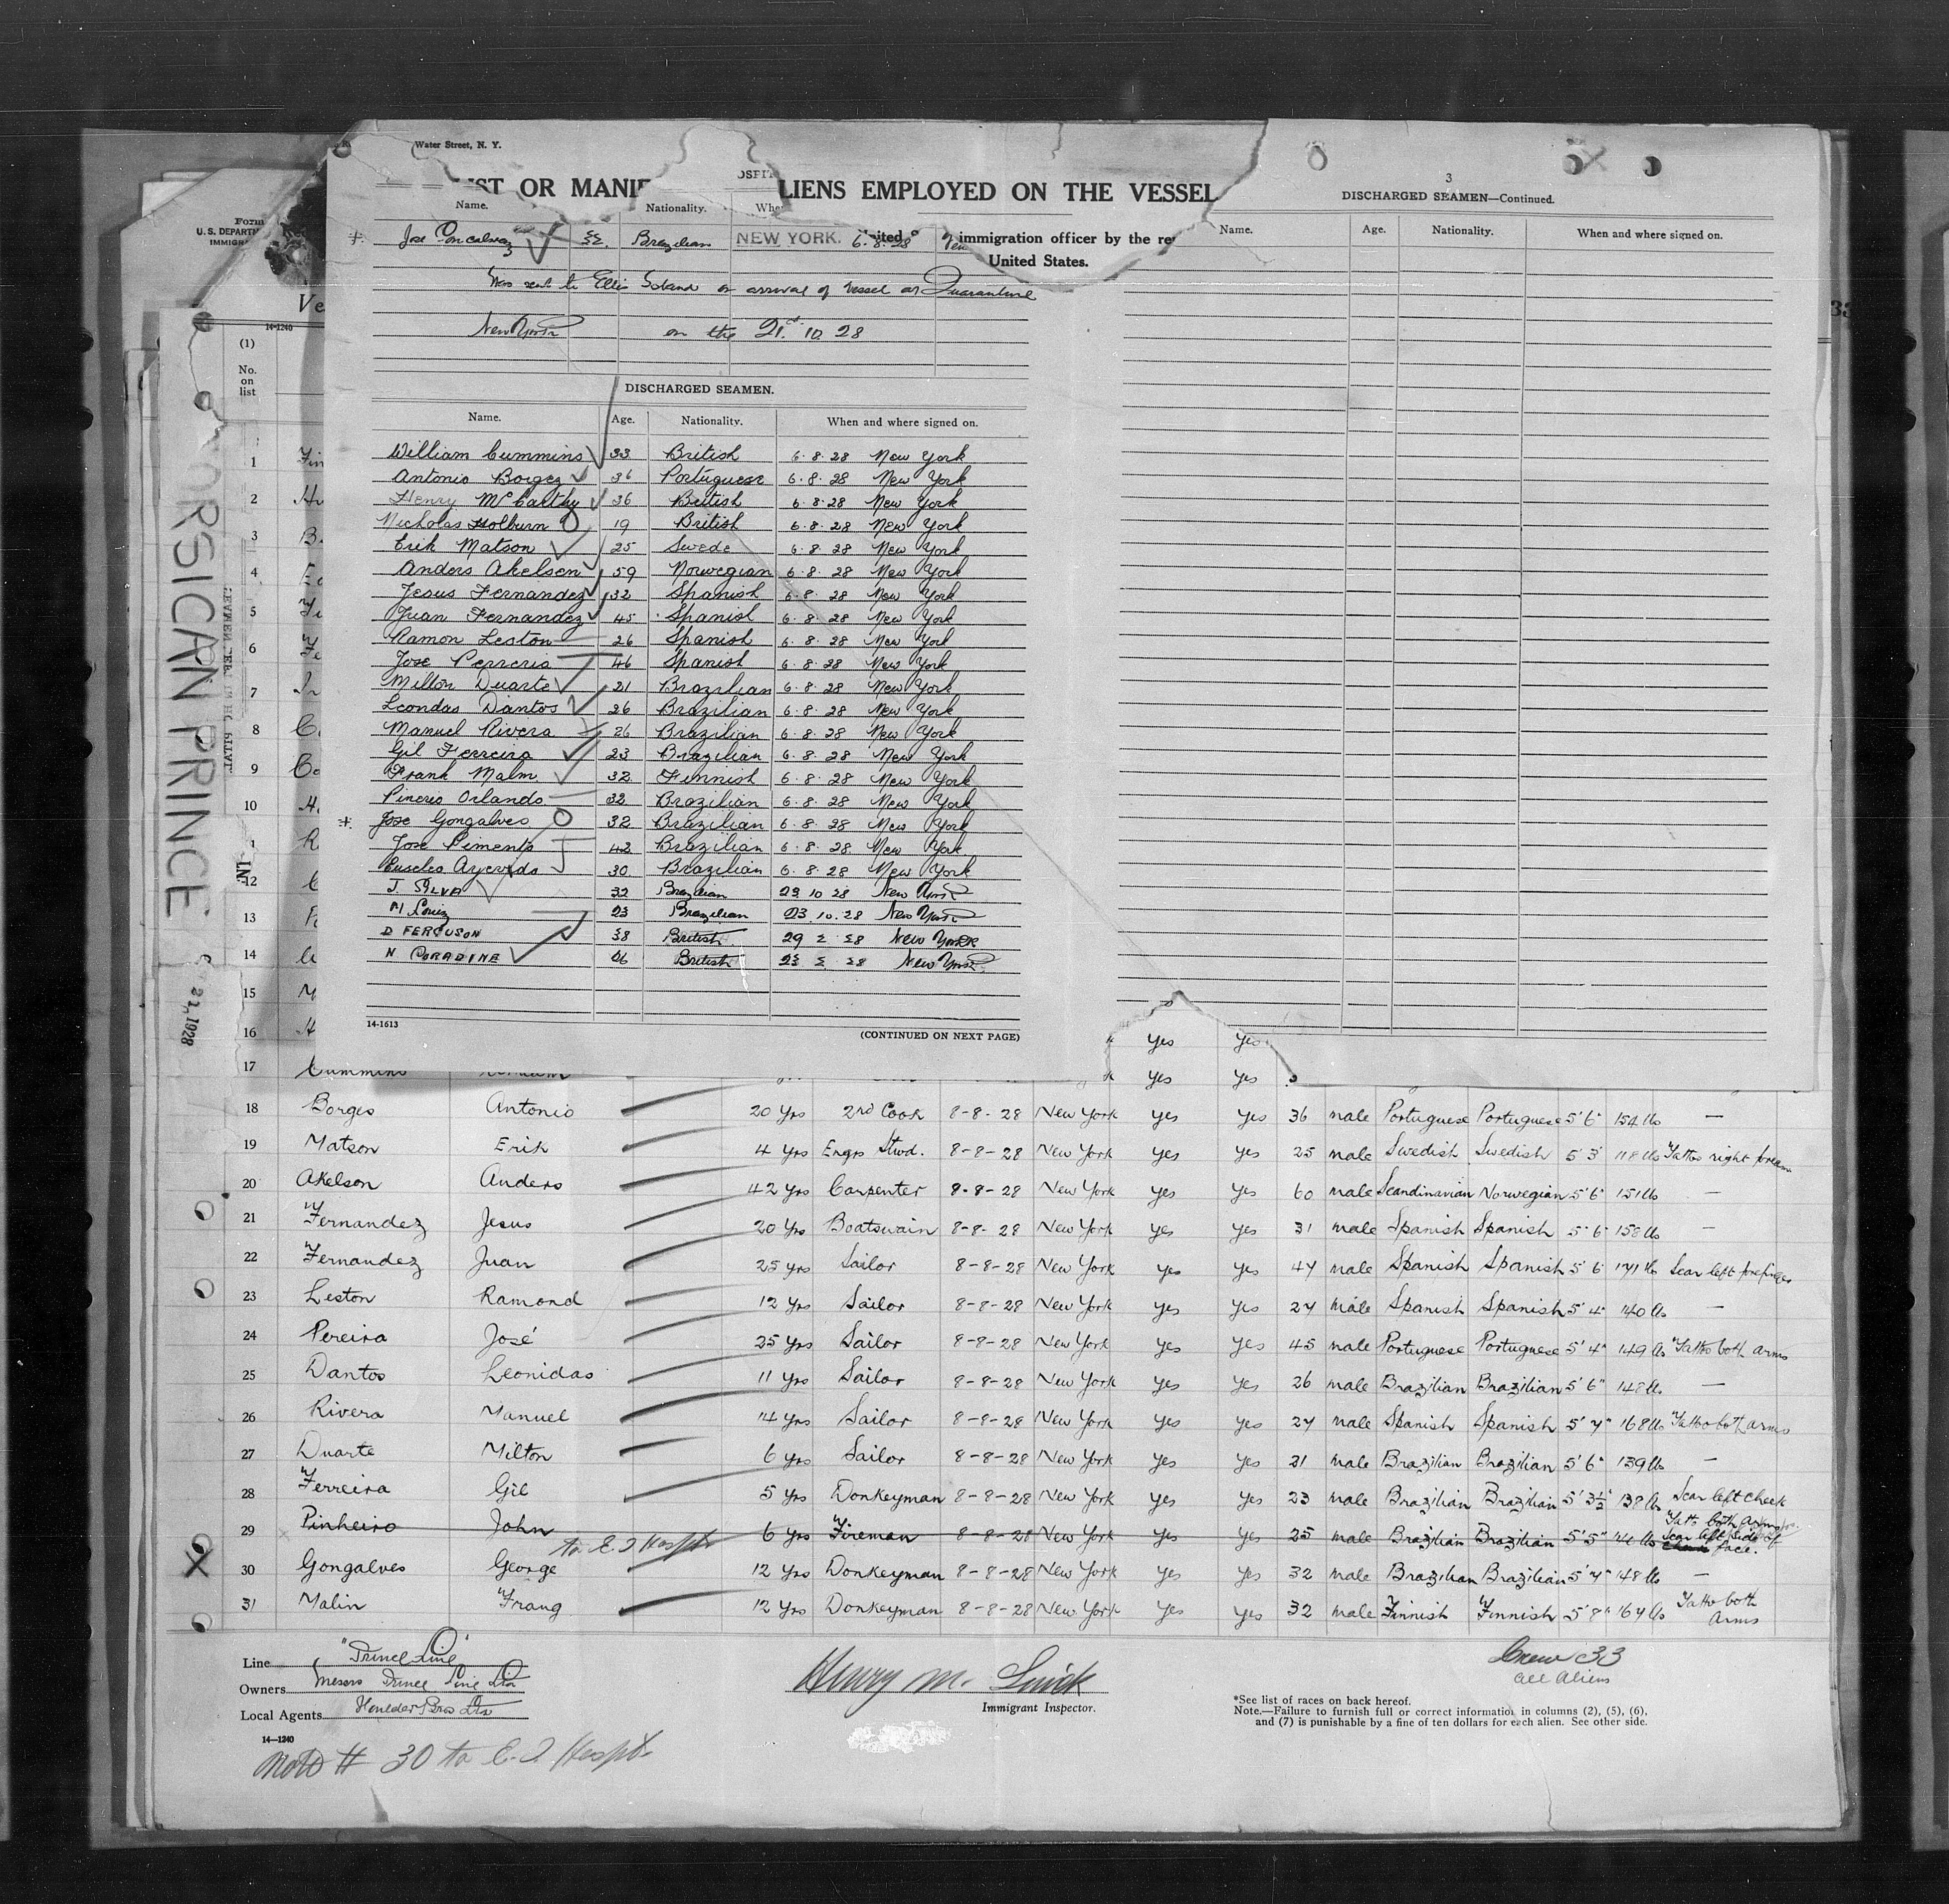 Water Street, N. Y.
OSPIT
LIST OR MANIF LIENS EMPLOYED ON THE VESSEL
Name. Nationality. Whe
Jose Goncalvez Brazilian NEW YORK. 6.8.28 immigration officer by the re
United States.
Was sent to Ellis Island on arrival of Vessel at Quarantine
New York on the 21st 10 28
DISCHARGED SEAMEN.
Name. Age. Nationality. When and where signed on.
William Cummins 33 British 6.8.28 New York
Antonio Borgez 36 Portuguese 6.8.28 New York
Henry McCarthy 36 British 6.8.28 New York
Nicholas Holburn 19 British 6.8.28 New York
Erik Matson 25 Swede 6.8.28 New York
Anders Akelsen 59 Norwegian 6.8.28 New York
Jesus Fernandez 32 Spanish 6.8.28 New York
Juan Fernandez 45 Spanish 6.8.28 New York
Ramon Leston 26 Spanish 6.8.28 New York
Jose Perreria 46 Spanish 6.8.28 New York
Milton Duarte 21 Brazilian 6.8.28 New York
Leondas Dantos 26 Brazilian 6.8.28 New York
Manuel Rivera 26 Brazilian 6.8.28 New York
Gil Ferreira 23 Brazilian 6.8.28 New York
Frank Malm 32 Finnish 6.8.28 New York
Pinerio Orlando 32 Brazilian 6.8.28 New York
*. Jose Gongalves 32 Brazilian 6.8.28 New York
Jose Pimento 42 Brazilian 6.8.28 New York
Euseles Azevedo 30 Brazilian 6.8.28 New York
J. SILVA 32 Brazilian 23 10 28 New York
M Louiz 23 Brazilian 23.10.28 New York
D FERGUSON 38 British 29 28 New York
N CORADINE 26 British 28 New York
14-1613 (CONTINUED ON NEXT PAGE)
3
DISCHARGED SEAMEN—Continued.
Name. Age. Nationality. When and where signed on.
Form
U.S. DEPARTM
IMMIGRA
Ve
14-1240
(1)
No.
on
list
1
2
3
4
5
6
7
8
9
10
12
13
14
15
16 Yes Yes
17 Cummins Yes Yes
ORSICAN PRINCE
1928
18 Borges Antonio 20 Yrs 2nd Cook 8-8-28 New York Yes Yes 36 male Portuguese Portuguese 5'6" 154 lbs —
19 Matson Erik 4 Yrs Engrs Stwd. 8-8-28 New York Yes Yes 25 male Swedish Swedish 5'3" 118 lbs Tatto right forearm
20 Akelson Anders 42 Yrs Carpenter 8-8-28 New York Yes Yes 60 male Scandinavian Norwegian 5'6" 151 lbs —
21 Fernandez Jesus 20 Yrs Boatswain 8-8-28 New York Yes Yes 31 male Spanish Spanish 5'6" 158 lbs —
22 Fernandez Juan 25 Yrs Sailor 8-8-28 New York Yes Yes 47 male Spanish Spanish 5'6" 171 lbs Scar left forefinger
23 Leston Ramond 12 Yrs Sailor 8-8-28 New York Yes Yes 27 male Spanish Spanish 5'4" 140 lbs —
24 Pereira José 25 Yrs Sailor 8-8-28 New York Yes Yes 45 male Portuguese Portuguese 5'4" 149 lbs Tatto both arms
25 Dantos Leonidas 11 Yrs Sailor 8-8-28 New York Yes Yes 26 male Brazilian Brazilian 5'6" 148 lbs —
26 Rivera Manuel 14 Yrs Sailor 8-8-28 New York Yes Yes 27 male Spanish Spanish 5'7" 168 lbs Tatto both arms
27 Duarte Milton 6 Yrs Sailor 8-8-28 New York Yes Yes 21 male Brazilian Brazilian 5'6" 139 lbs —
28 Ferreira Gil 5 Yrs Donkeyman 8-8-28 New York Yes Yes 23 male Brazilian Brazilian 5'3½" 138 lbs Scar left cheek
29 Pinheiro John 6 Yrs Fireman 8-8-28 New York Yes Yes 25 male Brazilian Brazilian 5'5" lbs Tatto both arms Scar left side of face.
to E.I Hospt
30 Gongalves George 12 Yrs Donkeyman 8-8-28 New York Yes Yes 32 male Brazilian Brazilian 5'7" 148 lbs —
31 Malin Frang 12 Yrs Donkeyman 8-8-28 New York Yes Yes 32 male Finnish Finnish 5'8" 164 lbs Tatto both Arms
Line "Prince Line"
Owners Messrs Prince Line Ltd
Local Agents Houlder Bros Ltd
14—1240
Henry M.
Immigrant Inspector.
Crew 33
all Aliens
*See list of races on back hereof.
Note.—Failure to furnish full or correct information in columns (2), (5), (6),
and (7) is punishable by a fine of ten dollars for each alien. See other side.
Note # 30 to E.I Hospt.